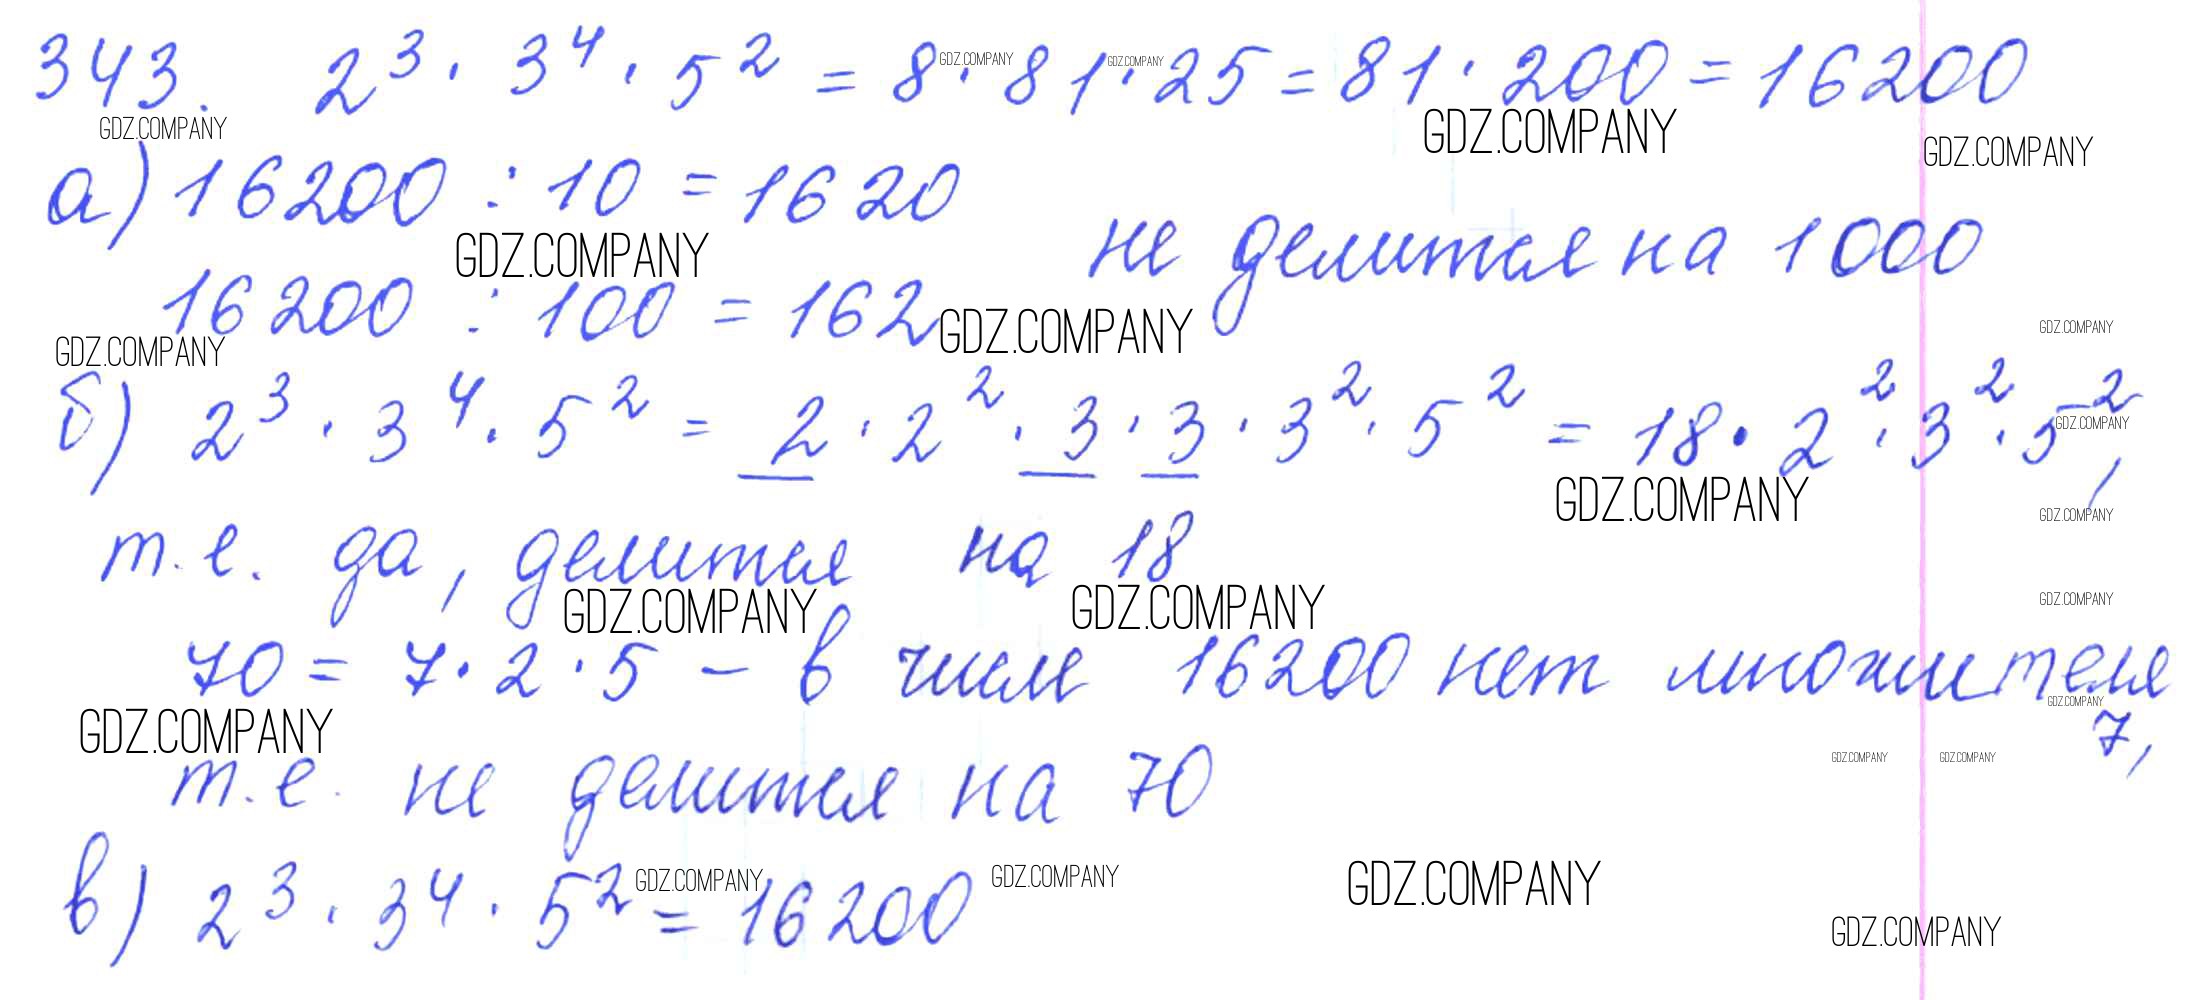 343. 2³ · 3⁴ · 5² = 8 · 81 · 25 = 81 · 200 = 16200
GDZ.COMPANY GDZ.COMPANY
GDZ.COMPANY GDZ.COMPANY GDZ.COMPANY
а) 16200 : 10 = 1620
не делится на 1000
GDZ.COMPANY
16200 : 100 = 162
GDZ.COMPANY GDZ.COMPANY GDZ.COMPANY
б) 2³ · 3⁴ · 5² = 2 · 2² · 3 · 3 · 3² · 5² = 18 · 2² · 3² · 5²,
GDZ.COMPANY
GDZ.COMPANY GDZ.COMPANY
т.е. да, делится на 18
GDZ.COMPANY GDZ.COMPANY GDZ.COMPANY
70 = 7 · 2 · 5 – в числе 16200 нет множителя
GDZ.COMPANY GDZ.COMPANY
7,
GDZ.COMPANY GDZ.COMPANY
т.е. не делится на 70
GDZ.COMPANY GDZ.COMPANY GDZ.COMPANY
в) 2³ · 3⁴ · 5² = 16200
GDZ.COMPANY